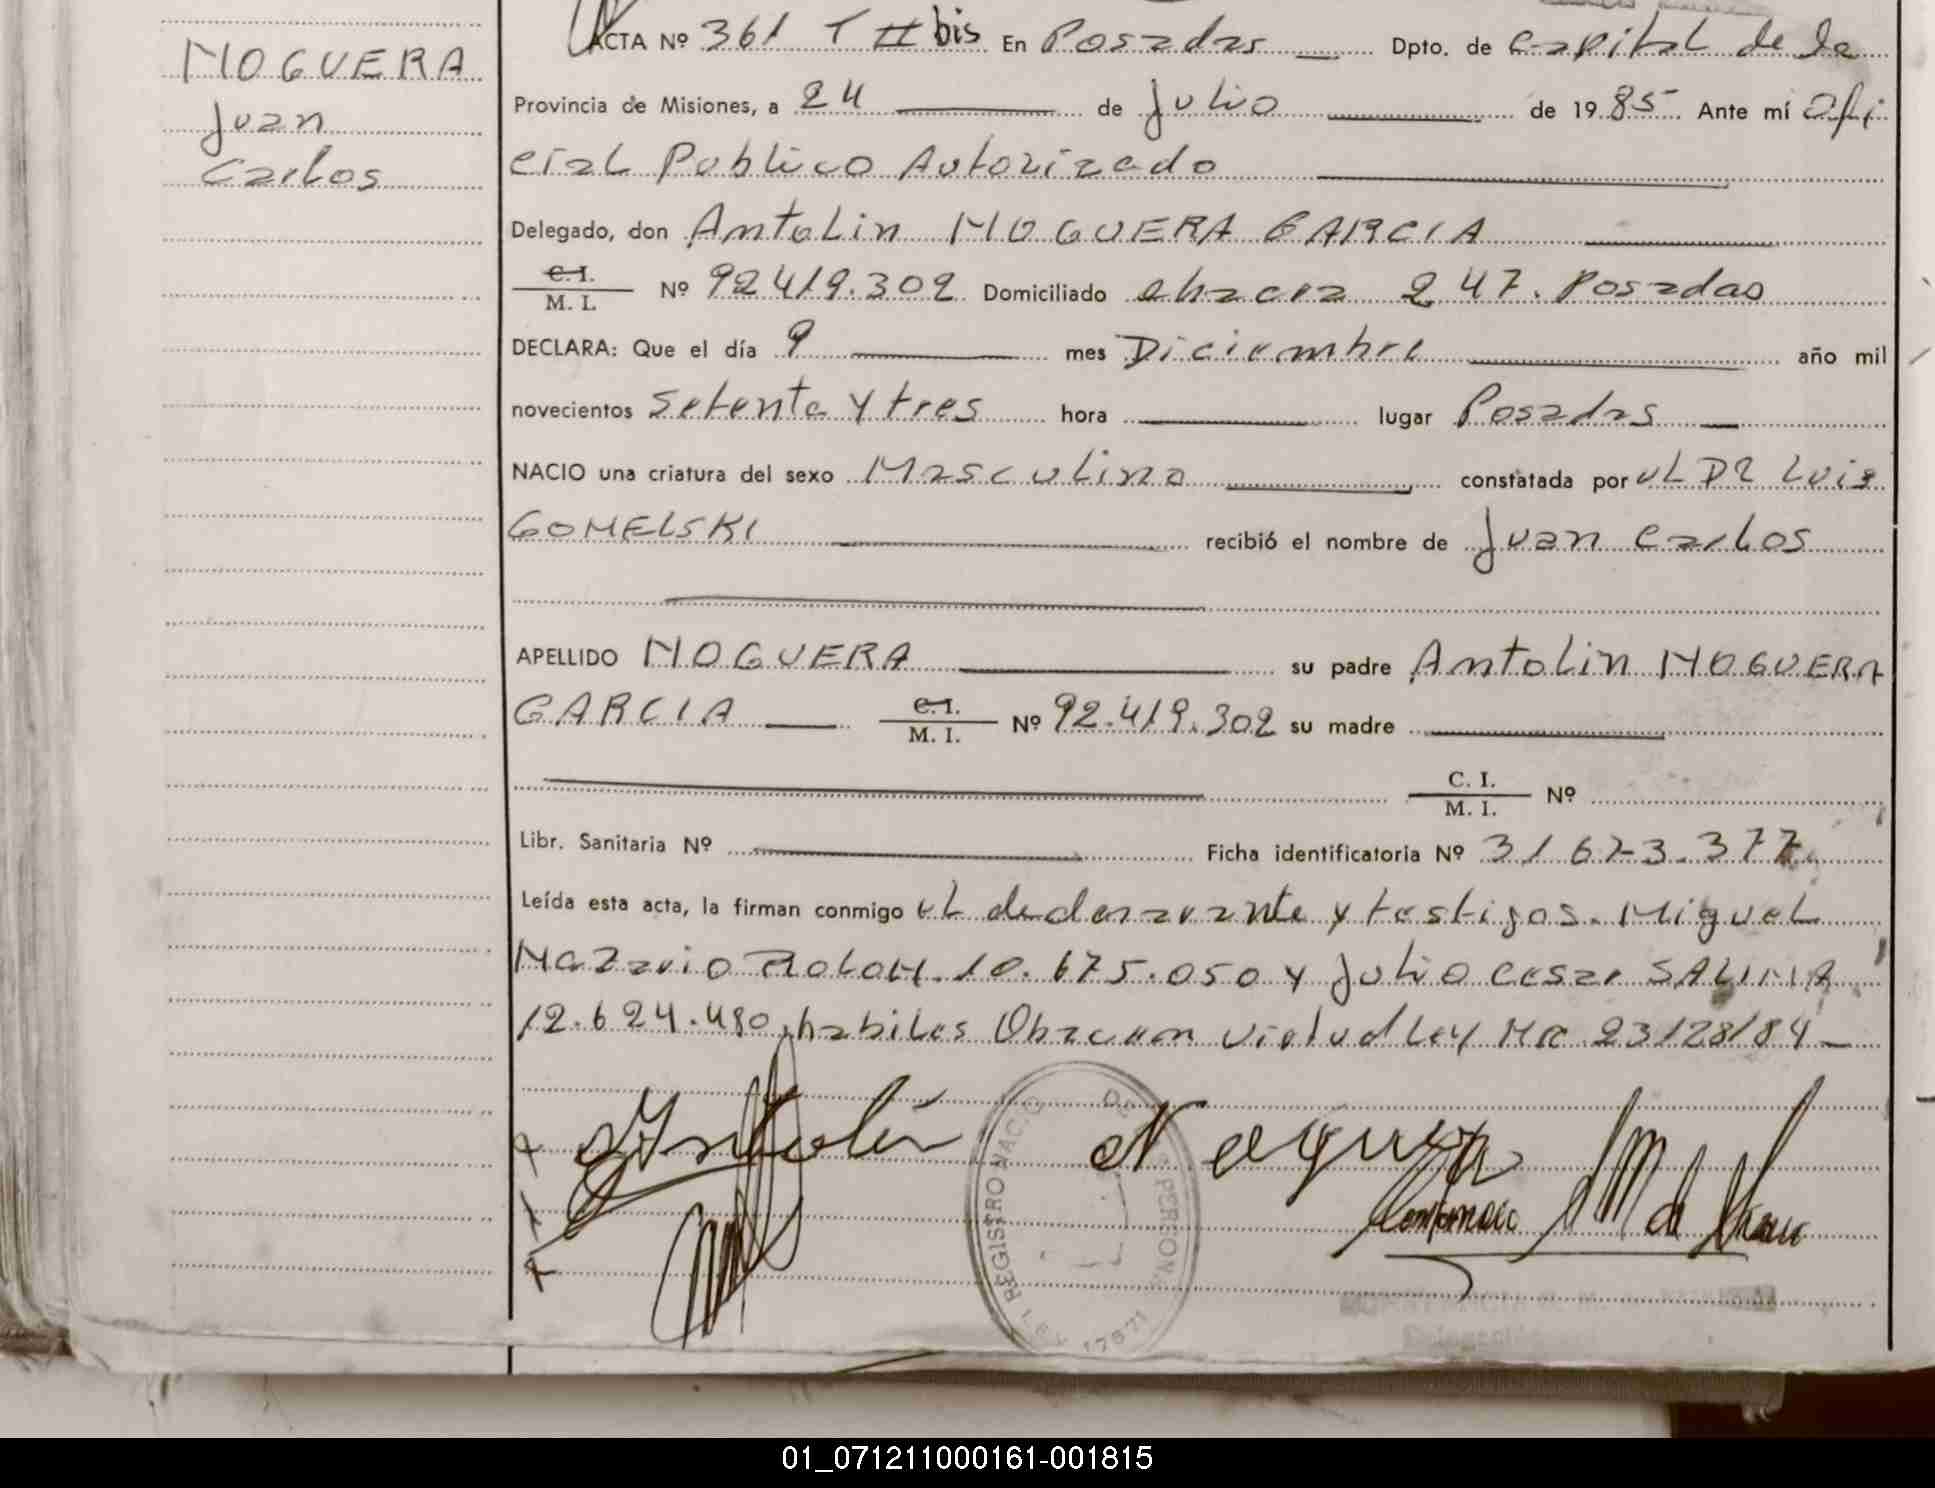 NOGUERA
Juan
Carlos
ACTA Nº 361 T II bis En Posadas Dpto. de Capital de la
Provincia de Misiones, a 24 de Julio de 1985 Ante mí Ofi
cial Publico Autorizado
Delegado, don Antolin NOGUERA GARCIA
C. I. / M. I. Nº 92419.302 Domiciliado chacra 247. Posadas
DECLARA: Que el día 9 mes Diciembre año mil
novecientos setenta y tres hora lugar Posadas
NACIO una criatura del sexo Masculino constatada por el DR Luis
GOMELSKI recibió el nombre de Juan Carlos
APELLIDO NOGUERA su padre Antolin NOGUERA
GARCIA C. I. / M. I. Nº 92.419.302 su madre
C. I. / M. I. Nº
Libr. Sanitaria Nº Ficha identificatoria Nº 31673.377
Leída esta acta, la firman conmigo el declarante y testigos. Miguel
Nazario ROLON. 10.675.050 y Julio Cesar SALINA
12.624.480, habiles Obran en virtud Ley Nr 23/28/84
Antolin Noguera
REGISTRO NAC. DE PERSON
LEY 17671
Delegación
01_071211000161-001815